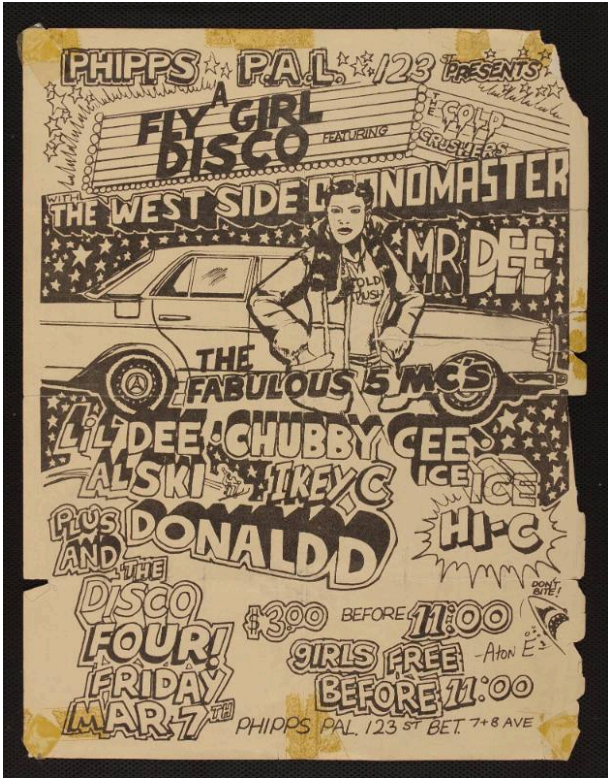 PHIPPS P.A.L. 123 PRESENTS
A
FLY GIRL
DISCO FEATURING
THE COLD
CRUSHERS
WITH
THE WEST SIDE GRANDMASTER
MR DEE
COLD
CRUSH
THE
FABULOUS 5 MC'S
LIL DEE • CHUBBY CEE •
AL SKI IKEY C ICE ICE
HI-C
PLUS DONALD D
AND
THE
DISCO
FOUR!
FRIDAY
MAR 7TH
$3.00 BEFORE 11:00
GIRLS FREE
BEFORE 11:00
DON'T
BITE!
-Aton E
PHIPPS PAL. 123 ST BET. 7+8 AVE